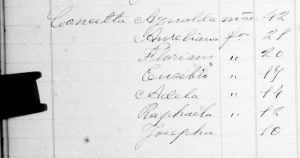 Concetta Agnolda mãe 42
Aureliana fa 21
Floriam " 20
Eusebio " 17
Adela " 14
Raphaela " 12
Josepha " 10